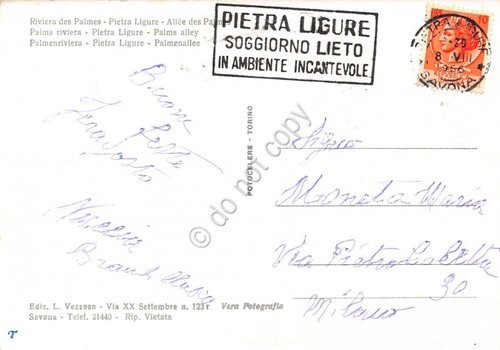 Riviera des Palmes - Pietra Ligure - Allée des Palm
Palms riviera - Pietra Ligure - Palms alley
Palmenriviera - Pietra Ligure - Palmenallee
PIETRA LIGURE
SOGGIORNO LIETO
IN AMBIENTE INCANTEVOLE
8 VIII
SAVONA
10
Buone
Feste
FOTOCELERE - TORINO
do not copy
Moneta Maria
Via Pietro
30
Milano
Ediz. L. Vezzoso - Via XX Settembre n. 123r Vera Fotografia
Savona - Telef. 21440 - Rip. Vietata